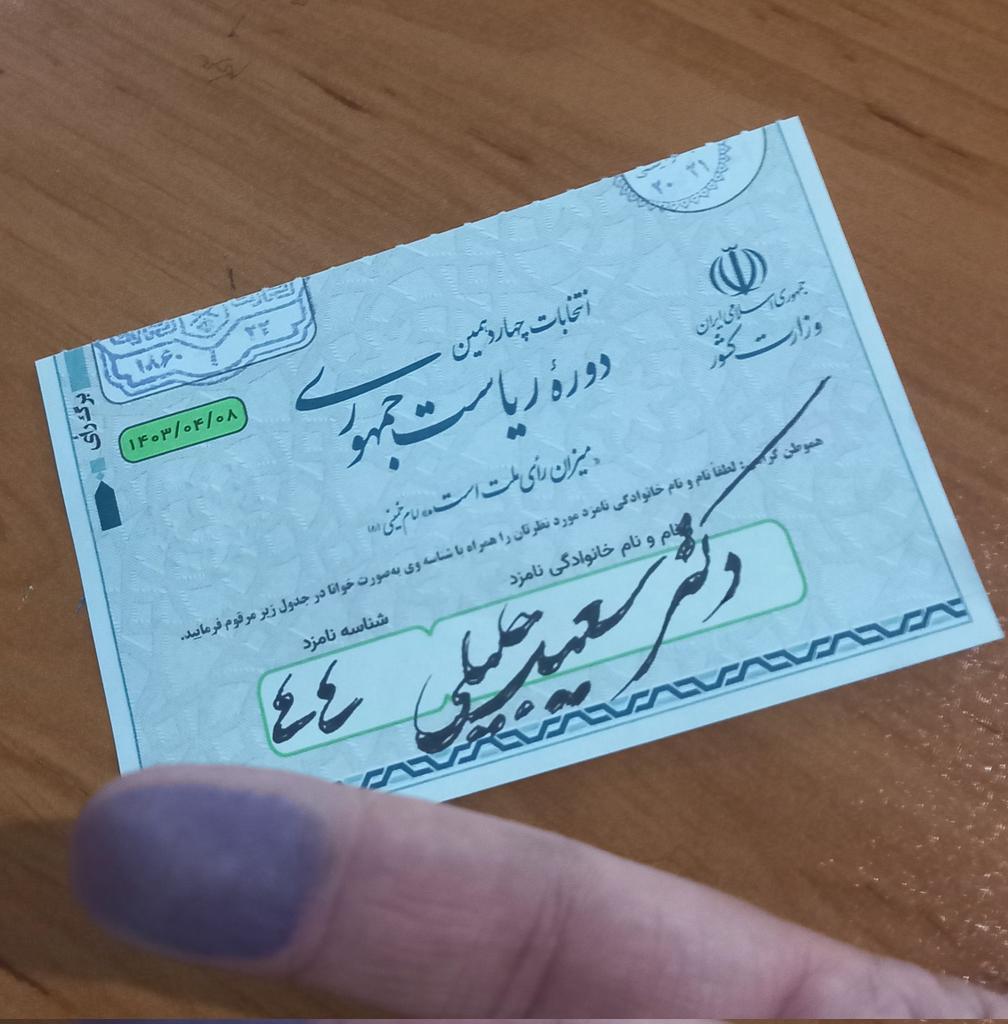 ۲۰ ۲۱
جمهوری اسلامی ایران
وزارت کشور
انتخابات چهاردهمین
دورهٔ ریاست جمهوری
۲۲
۱۸۶۰
برگ رأی
۱۴۰۳/۰۴/۰۸
«میزان رأی ملت است» امام خمینی (ره)
هموطن گرامی: لطفاً نام و نام خانوادگی نامزد مورد نظرتان را همراه با شناسه وی به‌صورت خوانا در جدول زیر مرقوم فرمایید.
نام و نام خانوادگی نامزد
شناسه نامزد
دکتر سعید جلیلی
۴۴